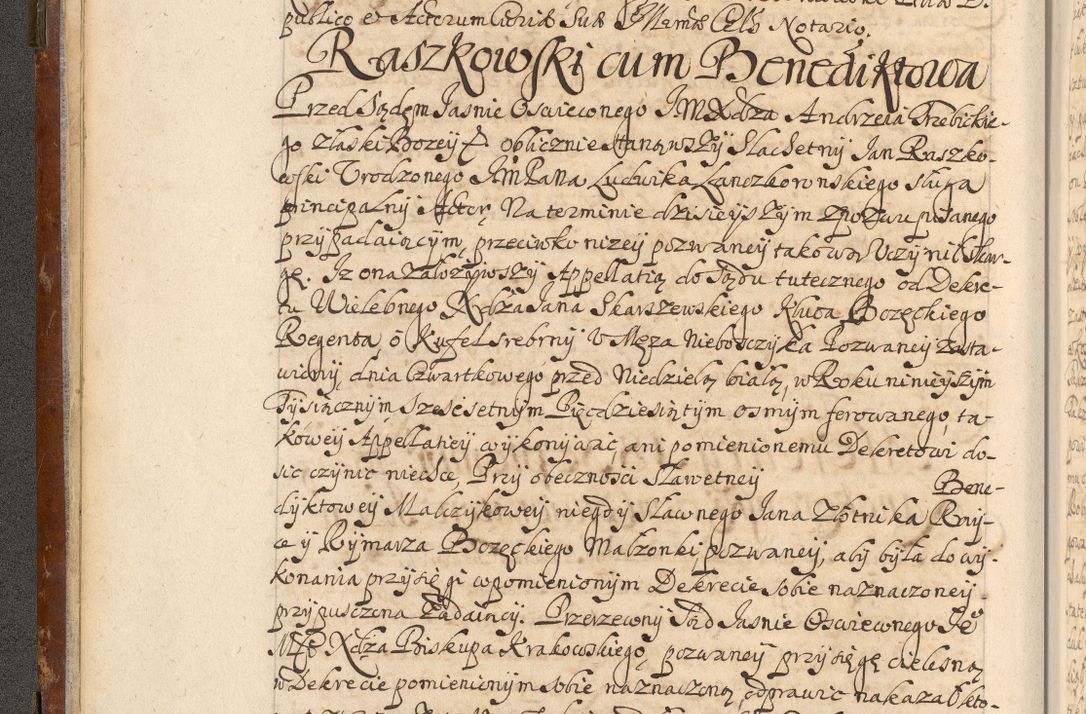 publico et Actorum Curiæ Suæ Illmæ Cels Notario.
Raszkowski cum Benediktowa
Przed Sądem Jasnie Oswieconego JMXdza Andrzeia Trzebickie-
go z łaski Bozey & obliczniestanąwszÿ Slachetnÿ Jan Raszko-
wski Vrodzonego JMPana Ludwika Lanczkoronskiego sługa
principalnÿ Actor, Na terminie dzisieÿszÿm z pozwu pisanego
przÿpadaiącÿm, przeciwko nizeÿ pozwaneÿ takową Vczÿnił skar-
gę. Iz ona załozÿwszÿ Appellatią do Sądu tutecznego od Dekre-
tu Wielebnego Xdza Jana Skarszewskiego Klucza Bozęckiego
Regenta, o Kufel srebrnÿ V Męza Nieboszczÿka Pozwaneÿ zasta-
wionÿ, dnia Czwartkowego przed Niedzielą białą, w Roku ninieÿszÿm
Tÿsiącznÿm Szescsetnÿm Pięcdziesiątÿm osmÿm ferowanego, ta-
koweÿ Appellatieÿ wÿkonÿwac ani pomienionemu Dekretowi do-
sic czÿnic niechce, Przÿ obecznosci Sławetneÿ Bene-
dÿktoweÿ Malczÿkoweÿ niegdÿ sławnego Jana Złotnika Raÿ-
ce ÿ Rÿmarza Bozęckiego Małzonki, pozwaneÿ, abÿ bÿła do wÿ-
konania przÿsięgi w pomienionÿm Dekrecie sobie naznaczoneÿ
przÿpusczona Ządaiącÿ. Przerzeconÿ Sąd Jasnie Oswieconego Je
Mści Xdza Biskupa Krakowskiego, pozwaneÿ przÿsięgę cielesną
w Dekrecie pomienionÿm sobie naznaczoną odprawic nakazał kto-